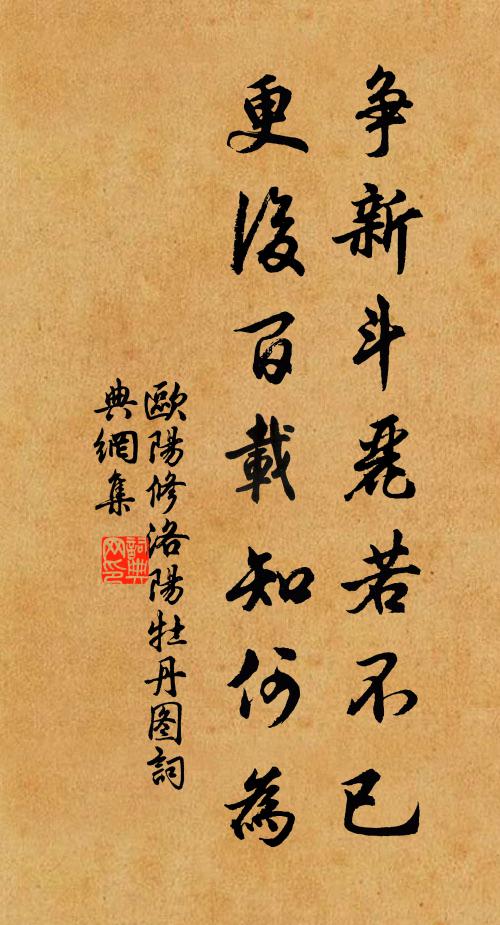 争新斗麗若不已
更後百載知何為
歐陽修洛陽牡丹图詞
典網集
詞典網印